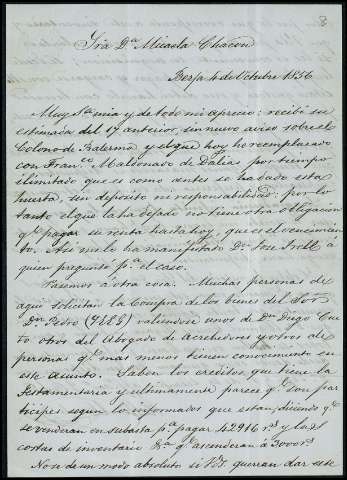 8
Sra Da Micaela Chacon
Berja 4 de Octubre 1856
Muy Sra mia y de todo mi aprecio: recibi su
estimada del 17 anterior, sin nuevo aviso sobre el
Colono de Balerma y el que hoy he reemplazado
con Franco Maldonado de Dalias por tiempo
ilimitado que es como antes se ha dado esta
huerta, sin deposito ni responsabilidad: por lo
tanto el que la ha dejado no tiene otra obligacion
qe pagar su renta hasta hoy, que es el vencimien
to. Asi me lo ha manifestado Dn Jose à
quien pregunté pa el caso.
Pasemos á otra cosa. Muchas personas de
aqui solicitan la compra de los bienes del Sor
Dn Pedro valiendose unos de Dn Diego Cue
to otros del Abogado de Acrehedores y otros de
personas qe mas menos tienen conocimiento en
este asunto. Saben los creditos que tiene la
testamentaria y ultimamente parece qe son par
ticipes segun lo informados que estan, diciendo qe
se venderan en subasta pa pagar 42916 rs y las
costas de inventario &a qe ascenderan á 3000 rs
No se de un modo absoluto si Vds querran dar este